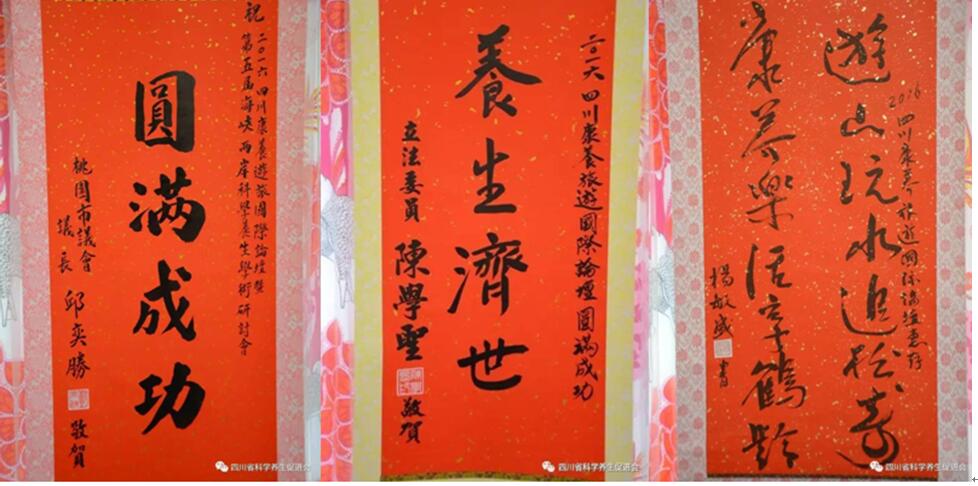 祝
二〇一六四川康養遊旅國際論壇暨
第五屆海峽兩岸科學養生學術研討會
圓满成功
桃園市議會
議長
邱奕勝
敬賀
四川省科学养生促进会
二〇一六四川康養旅遊國際論壇圓滿成功
養生濟世
立法委員
陳學聖
敬賀
四川省科学养生促进会
2016四川康養旅遊國际論壇惠存
遊山玩水追松壽
康养樂活享鶴齡
楊敏盛
書
四川省科学养生促进会